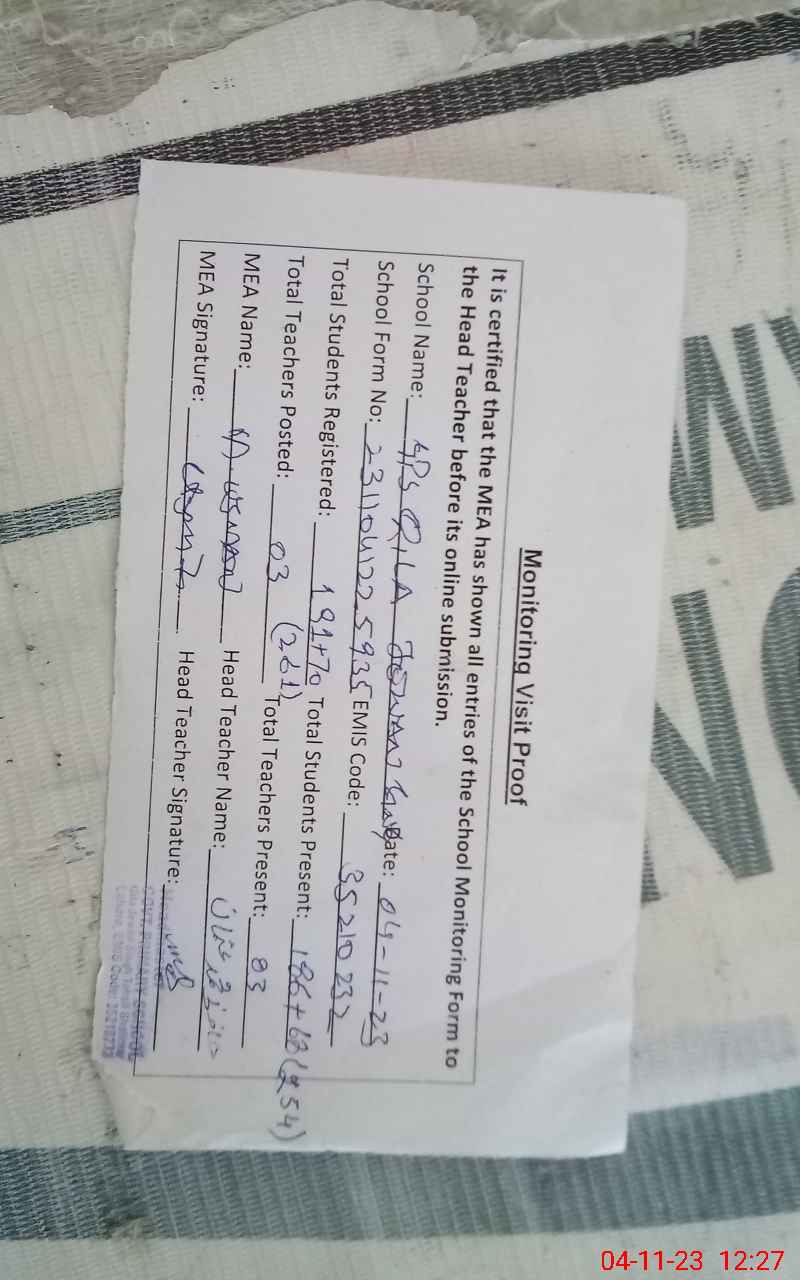 Monitoring Visit Proof
It is certified that the MEA has shown all entries of the School Monitoring Form to
the Head Teacher before its online submission.
School Name: GPS QILA JEWAN Date: 04-11-23
School Form No: 2311041225935 EMIS Code: 35210232
Total Students Registered: 191+70 (261) Total Students Present: 186+68 (254)
Total Teachers Posted: 03 Total Teachers Present: 03
MEA Name: M. USMAN Head Teacher Name: حافظ محمد عثمان
MEA Signature: Head Teacher Signature:
GOVT. PRIMARY SCHOOL
Lahore, EMIS Code:
NO
04-11-23 12:27